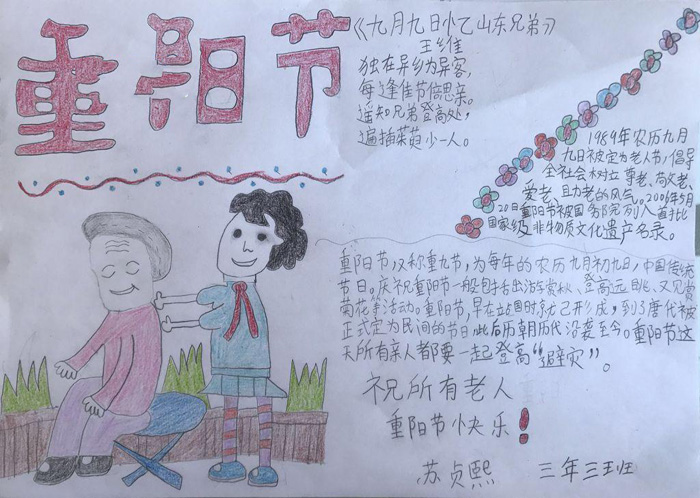 重阳节
《九月九日忆山东兄弟》
王维
独在异乡为异客,
每逢佳节倍思亲。
遥知兄弟登高处,
遍插茱萸少一人。
1989年农历九月
九日被定为老人节,倡导
全社会树立尊老、敬老、
爱老、助老的风气。2006年5月
20日重阳节被国务院列入首批
国家级非物质文化遗产名录。
重阳节,又称重九节,为每年的农历九月初九日,中国传统
节日。庆祝重阳节一般包括出游赏秋、登高远眺、观赏
菊花等活动。重阳节,早在战国时就已形成,到了唐代被
正式定为民间的节日此后历朝历代沿袭至今。重阳节这
天所有亲人都要一起登高“避灾”。
祝所有老人
重阳节快乐!
苏贞熙 三年三班